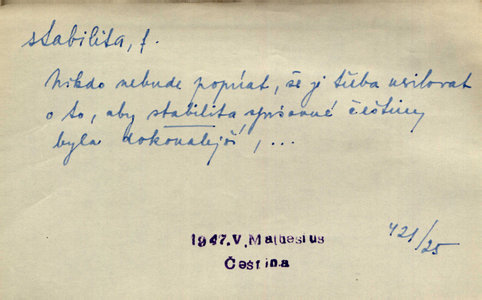 stabilita, f.
Nikdo nebude popírat, že je třeba usilovat
o to, aby stabilita spisovné češtiny
byla dokonalejší, ...
421/25
1947.V.Mathesius
Čeština